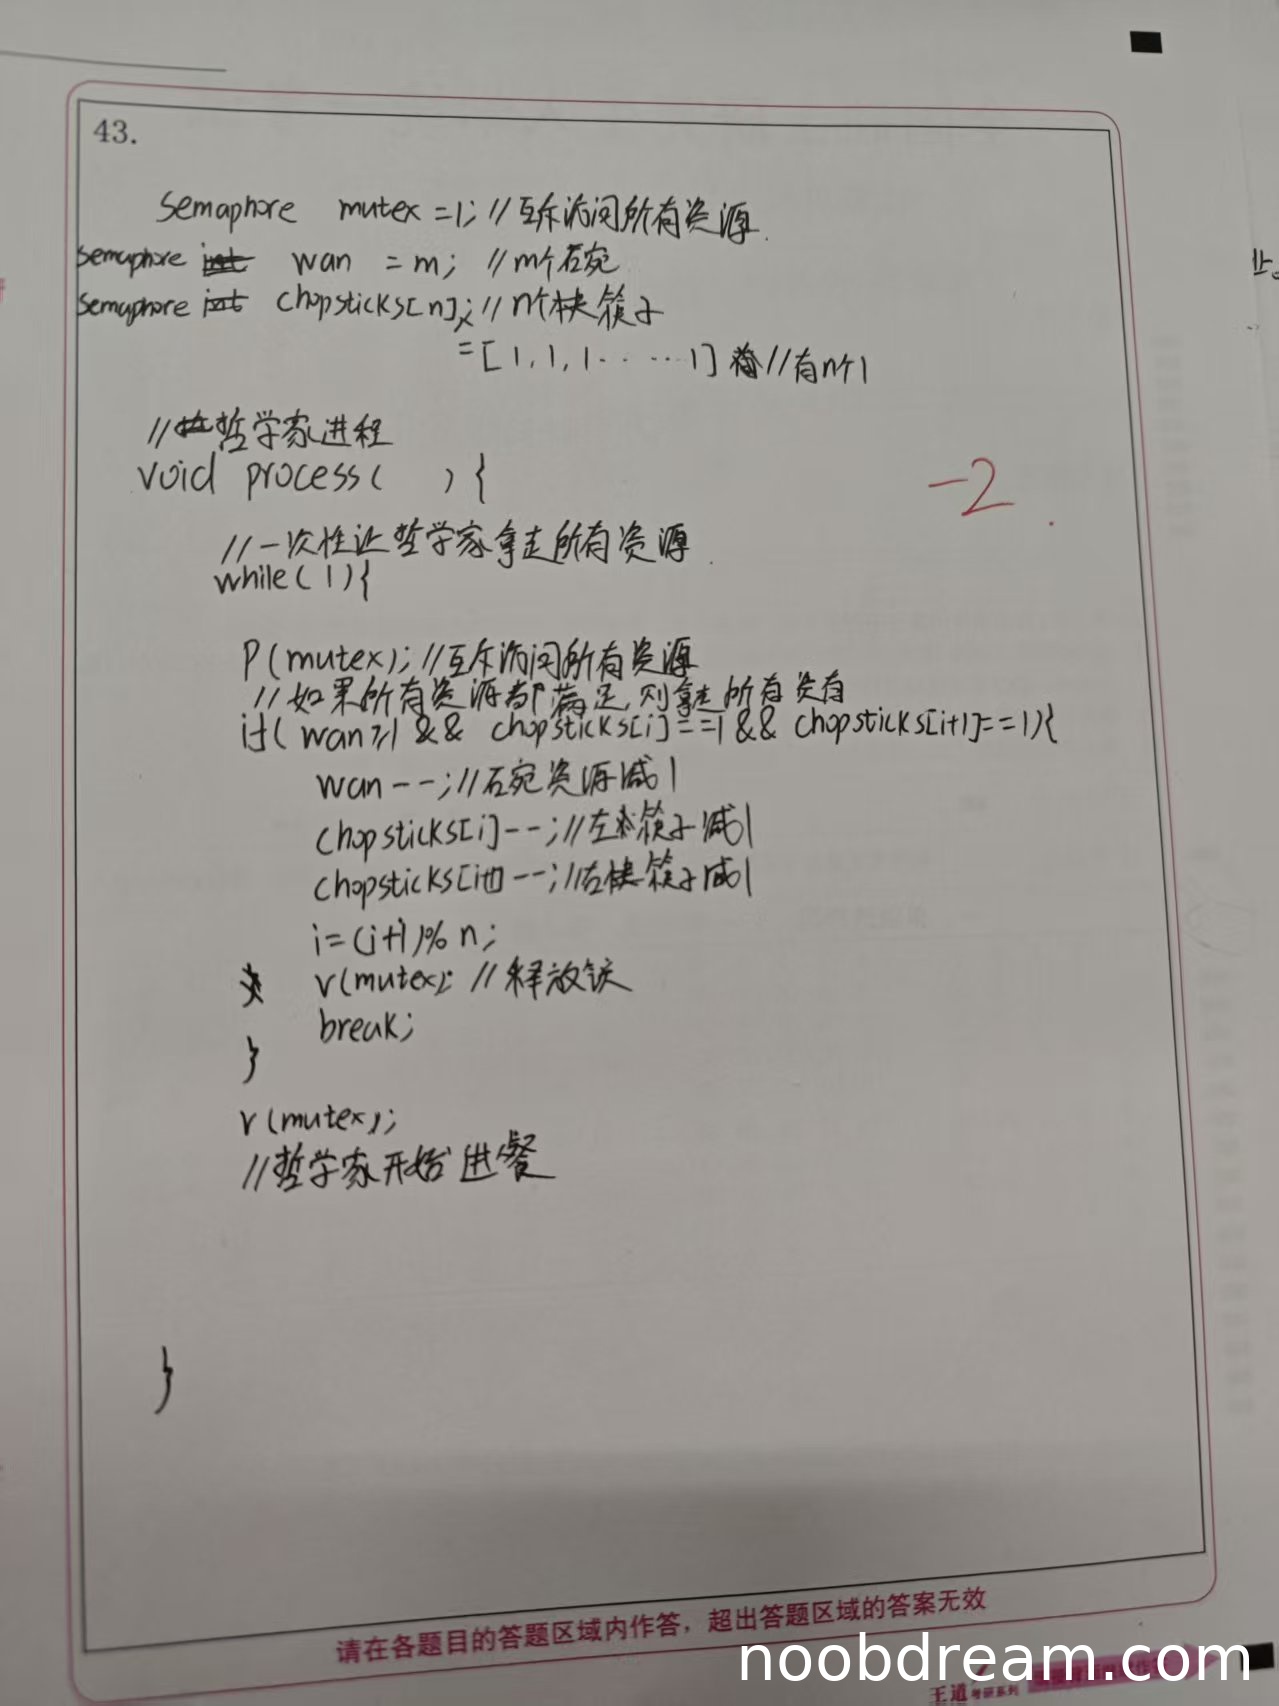 43.
Semaphore mutex =1; //互斥访问所有资源.
semaphore int wan = m; //m个石宛
semaphore int chopsticks[n]; //n个快筷子
=[1,1,1……1] //有n个1
//哲学家进程
void process( ){
//一次性让哲学家拿走所有资源.
while(1){
-2.
P(mutex); //互斥访问所有资源
//如果所有资源都满足,则拿走所有资有
if( wan≥1 && chopsticks[i]==1 && chopsticks[i+1]==1){
wan--; //石宛资源减1
chopsticks[i]--; //左筷子减1
chopsticks[i+1]--; //右快筷子减1
i=(i+1)%n;
v(mutex); //释放锁
break;
}
v(mutex);
//哲学家开始进餐
}
请在各题目的答题区域内作答，超出答题区域的答案无效
noobdream.com
王道考研系列